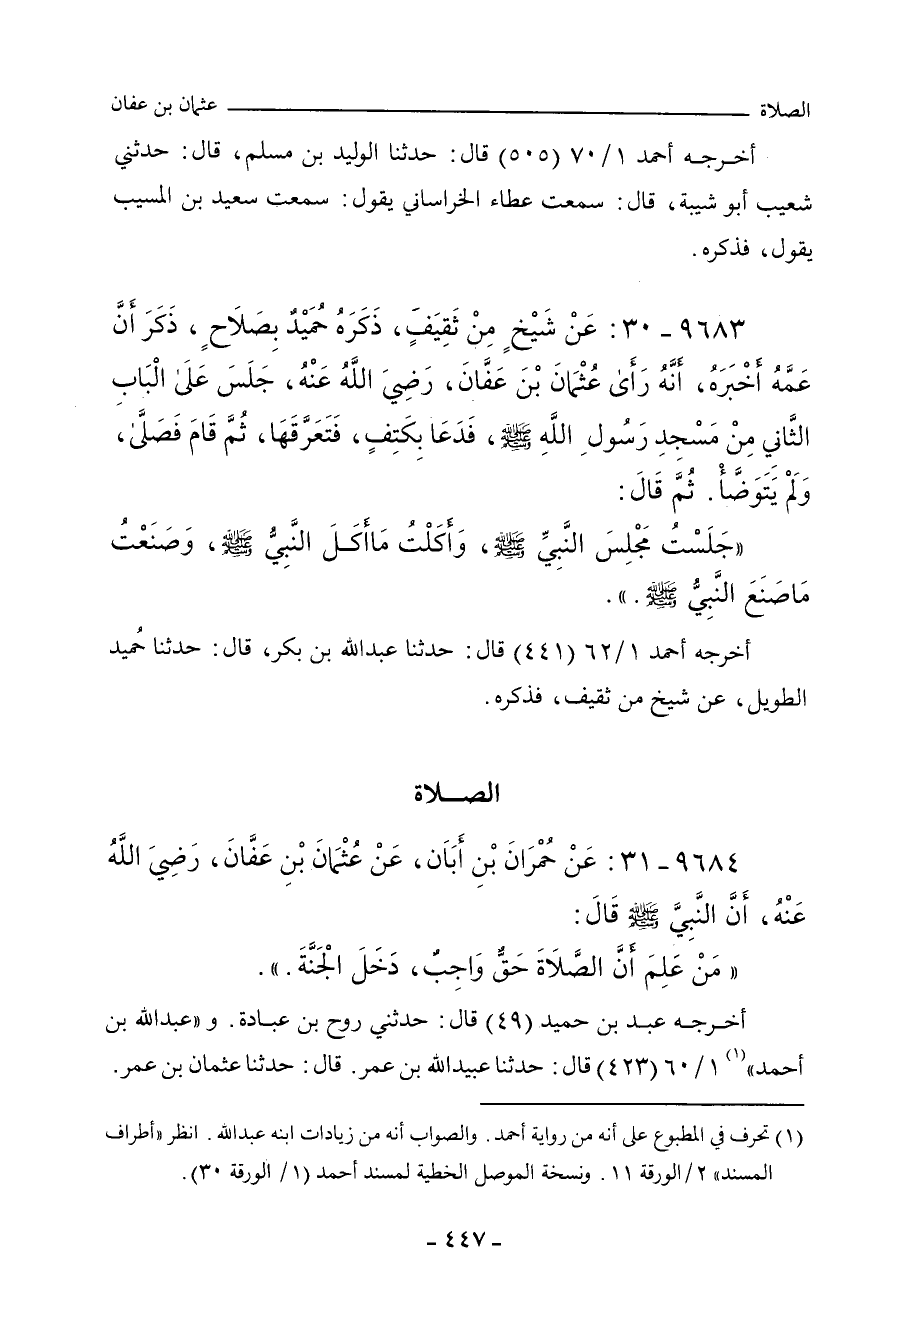 الصلاة ــــــ عثمان بن عفان
أخرجه أحمد ١/ ٧٠ (٥٠٥) قال: حدثنا الوليد بن مسلم، قال: حدثني
شعيب أبو شيبة، قال: سمعت عطاء الخراساني يقول: سمعت سعيد بن المسيب
يقول، فذكره.
٩٦٨٣ - ٣٠: عَنْ شَيْخٍ مِنْ ثَقِيفٍ، ذَكَرَهُ حُمَيْدٌ بِصَلَاحٍ، ذَكَرَ أَنَّ
عَمَّهُ أَخْبَرَهُ، أَنَّهُ رَأَىٰ عُثْمَانَ بْنَ عَفَّانَ، رَضِيَ اللَّهُ عَنْهُ، جَلَسَ عَلَىٰ الْبَابِ
الثَّانِي مِنْ مَسْجِدِ رَسُولِ اللَّهِ ﷺ، فَدَعَا بِكَتِفٍ، فَتَعَرَّقَهَا، ثُمَّ قَامَ فَصَلَّىٰ،
وَلَمْ يَتَوَضَّأْ. ثُمَّ قَالَ:
«جَلَسْتُ مَجْلِسَ النَّبِيِّ ﷺ، وَأَكَلْتُ مَاأَكَلَ النَّبِيُّ ﷺ، وَصَنَعْتُ
مَاصَنَعَ النَّبِيُّ ﷺ.».
أخرجه أحمد ١/ ٦٢ (٤٤١) قال: حدثنا عبدالله بن بكر، قال: حدثنا حُميد
الطويل، عن شيخ من ثقيف، فذكره.
الصلاة
٩٦٨٤ - ٣١: عَنْ حُمْرَانَ بْنِ أَبَان، عَنْ عُثْمَانَ بْنِ عَفَّانَ، رَضِيَ اللَّهُ
عَنْهُ، أَنَّ النَّبِيَّ ﷺ قَالَ:
« مَنْ عَلِمَ أَنَّ الصَّلَاةَ حَقٌّ وَاجِبٌ، دَخَلَ الْجَنَّةَ.».
أخرجه عبد بن حميد (٤٩) قال: حدثني روح بن عبادة. و «عبدالله بن
أحمد»(١) ١/ ٦٠ (٤٢٣) قال: حدثنا عبيدالله بن عمر. قال: حدثنا عثمان بن عمر.
(١) تحرف في المطبوع على أنه من رواية أحمد. والصواب أنه من زيادات ابنه عبدالله. انظر «أطراف
المسند» ٢/الورقة ١١. ونسخة الموصل الخطية لمسند أحمد (١/ الورقة ٣٠).
- ٤٤٧ -